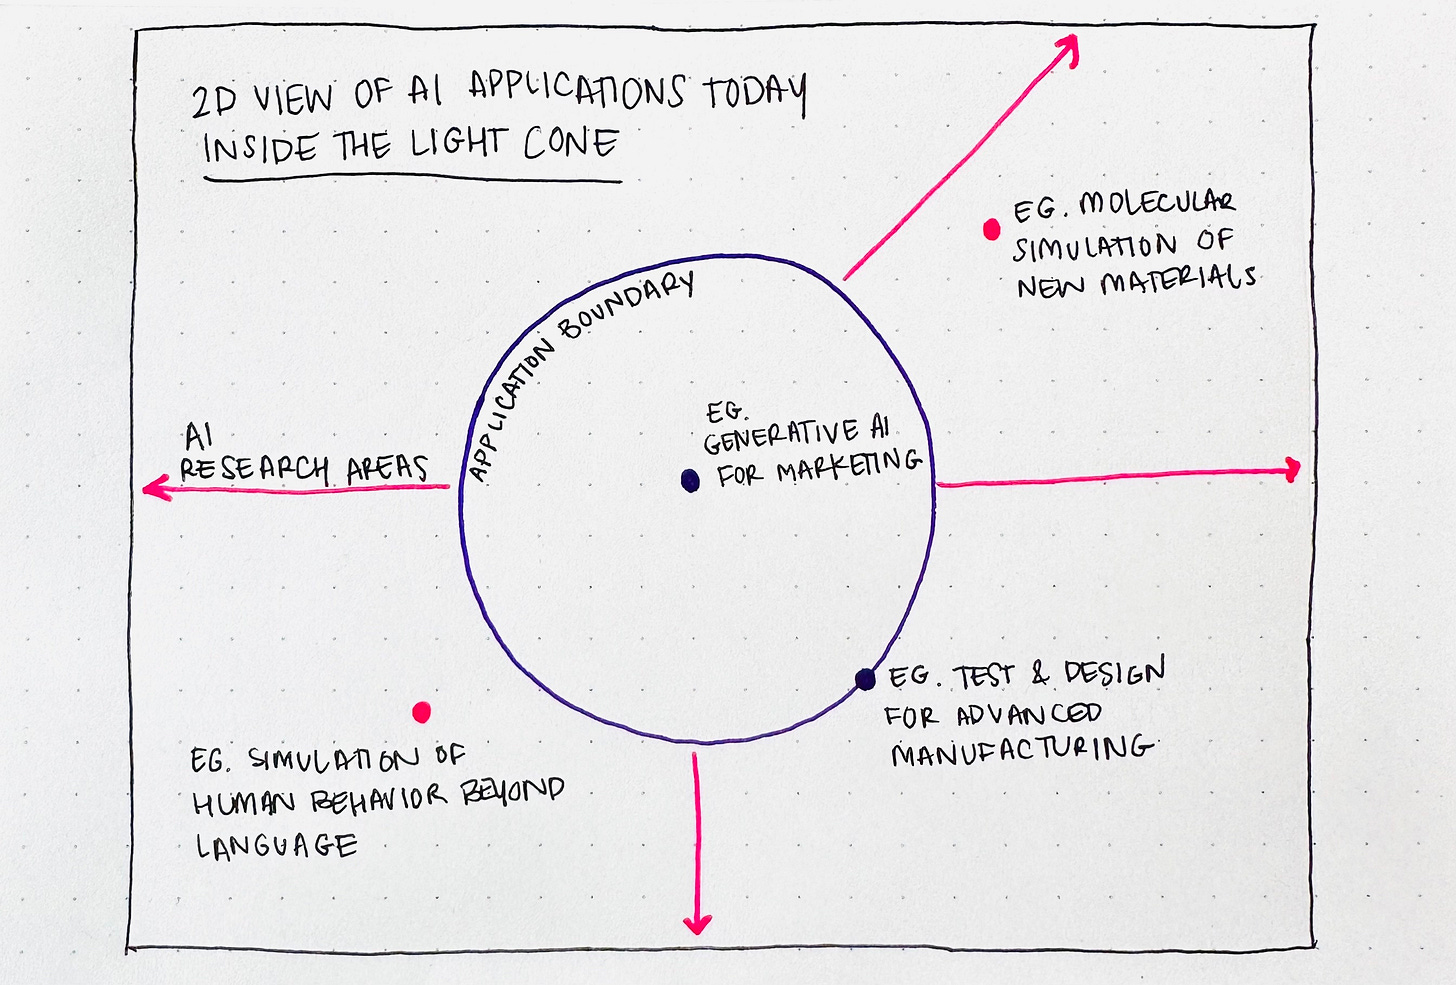 2D VIEW OF AI APPLICATIONS TODAY
INSIDE THE LIGHT CONE
EG. MOLECULAR
SIMULATION OF
NEW MATERIALS
APPLICATION BOUNDARY
EG.
GENERATIVE AI
FOR MARKETING
AI
RESEARCH AREAS
EG. TEST & DESIGN
FOR ADVANCED
MANUFACTURING
EG. SIMULATION OF
HUMAN BEHAVIOR BEYOND
LANGUAGE